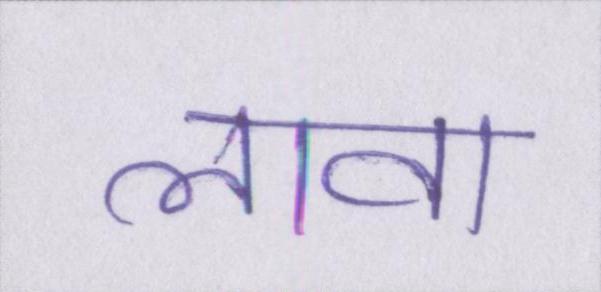 लावा